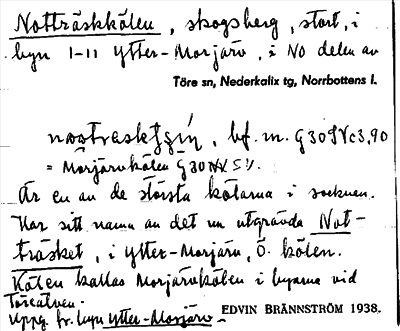 Notträskkölen, skogsberg, stort, i
byn 1-11 Ytter-Morjärv, i NO delen av
Töre sn, Nederkalix tg, Norrbottens l.
bf. m. G 30
= Morjärvkölen G 30
Är en av de största kölarna i socknen.
Har sitt namn av det nu utgrävda Not-
träsket, i Ytter-Morjärv, Ö. kölen.
Kölen kallas Morjärvkölen i byarna vid
Töreälven.
Uppg. fr. byn Ytter-Morjärv
EDVIN BRÄNNSTRÖM 1938.